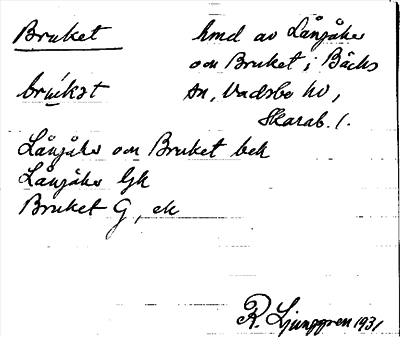 Bruket
hmd av Långåker
och Bruket i Bäcks
brúkət
sn, Vadsbo hd,
Skarab. l.
Långåker och Bruket bek
Långåker Gk
Bruket G, ek
R. Ljunggren 1931